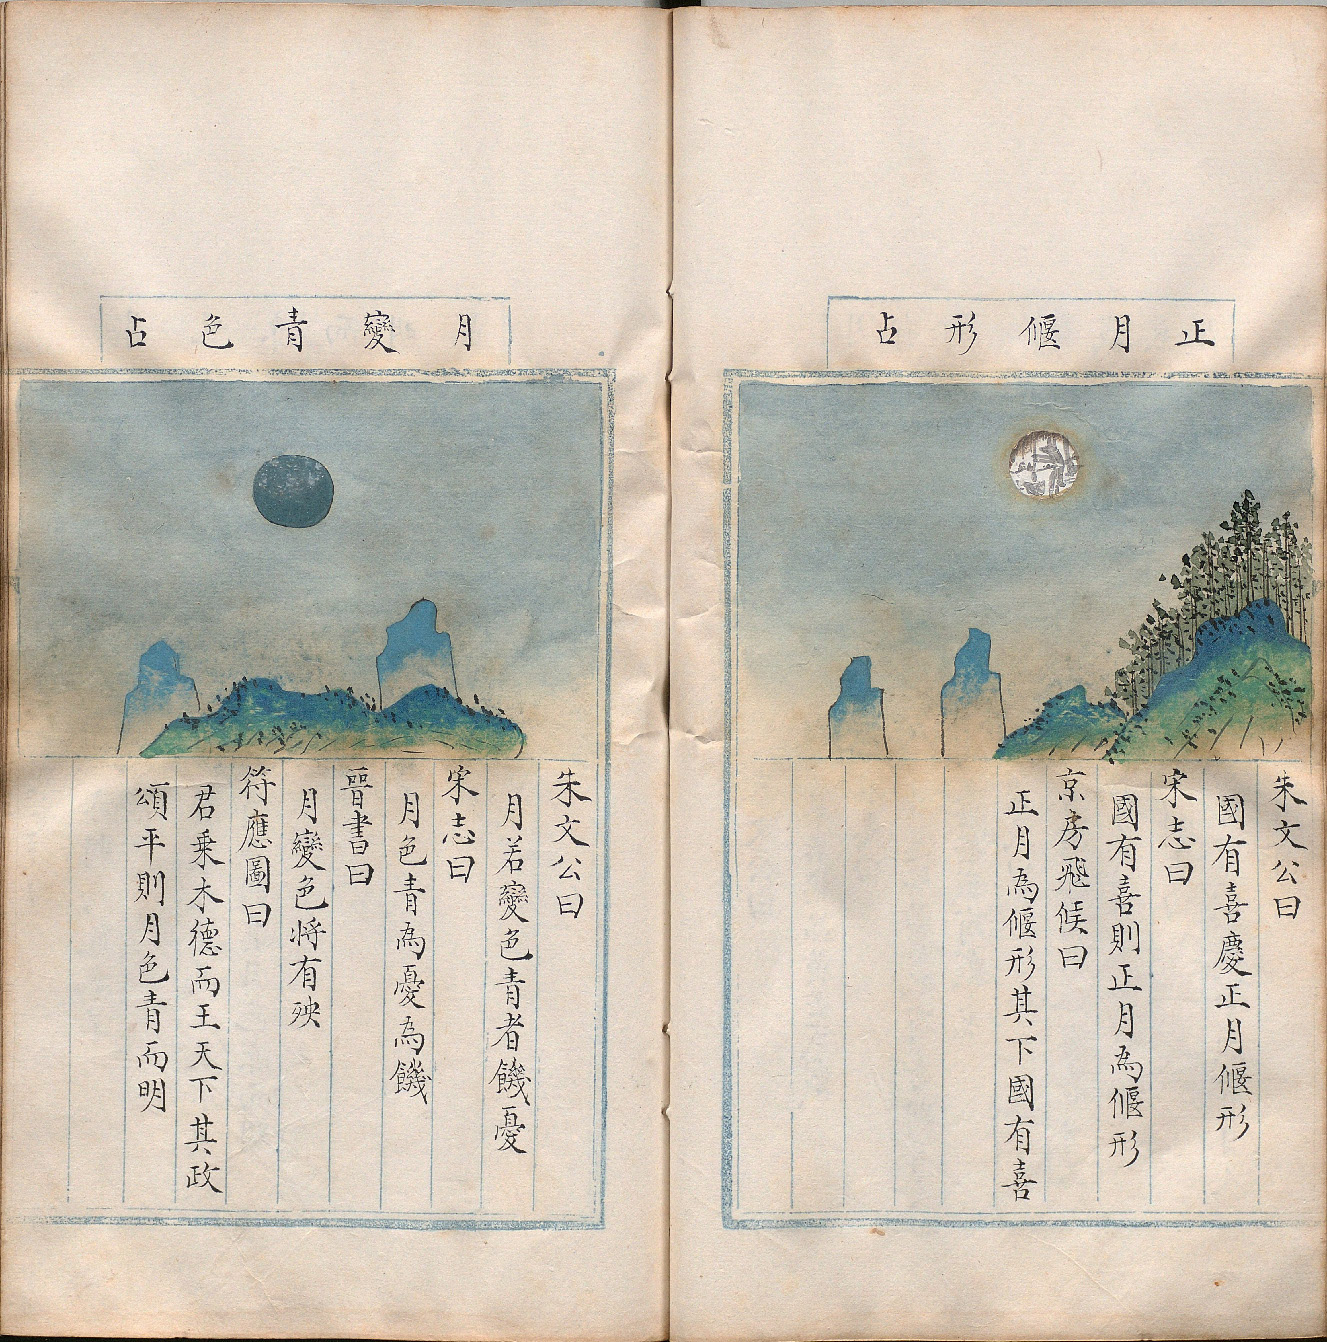 正月偃形占
朱文公曰
國有喜慶正月偃形
宋志曰
國有喜則正月為偃形
京房飛候曰
正月為偃形其下國有喜
月變青色占
朱文公曰
月若變色青者饑憂
宋志曰
月色青為憂為饑
晉書曰
月變色將有殃
符應圖曰
君乗木德而王天下其政
頌平則月色青而明